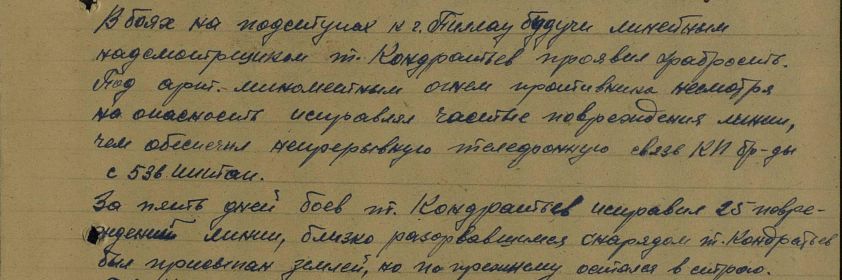 В боях на подступах к г. Пиллау будучи линейным
надсмотрщиком т. Кондратьев проявил храбрость.
Под арт. минометным огнем противника несмотря
на опасность исправлял частые повреждения линии,
чем обеспечил непрерывную телефонную связь КП бр-ды
с 536 Шптап.
За пять дней боев т. Кондратьев исправил 25 повре-
ждений линии, близко разорвавшимся снарядом т. Кондратьев
был присыпан землей, но по прежнему остался в строю.